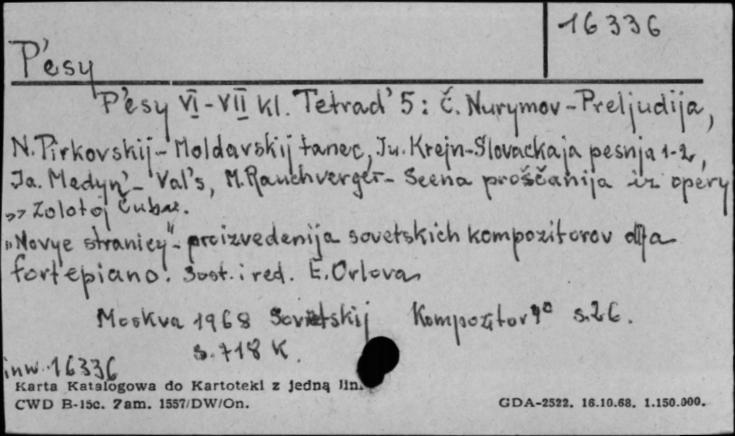 16336
P'esy
P'esy VI-VII kl. Tetrad' 5: Č. Nurymov-Preljudija,
N. Pirkovskij-Moldavskij tanec, Ju. Krejn-Slovackaja pesnja 1-2,
Ja. Medyn'- Val's, M. Rauchverger- Scena proščanija iz opery
„Zolotoj Čubar.
„Novye stranicy"- proizvedenija sovetskich kompozitorov dlja
fortepiano. Sost. i red. E. Orlova
Moskva 1968 Sovetskij Kompozitor 4° s.26.
s. 718 K.
inw. 16336
Karta Katalogowa do Kartoteki z jedną lin.
CWD B-15c. Zam. 1557/DW/On.
GDA-2522. 16.10.68. 1.150.000.